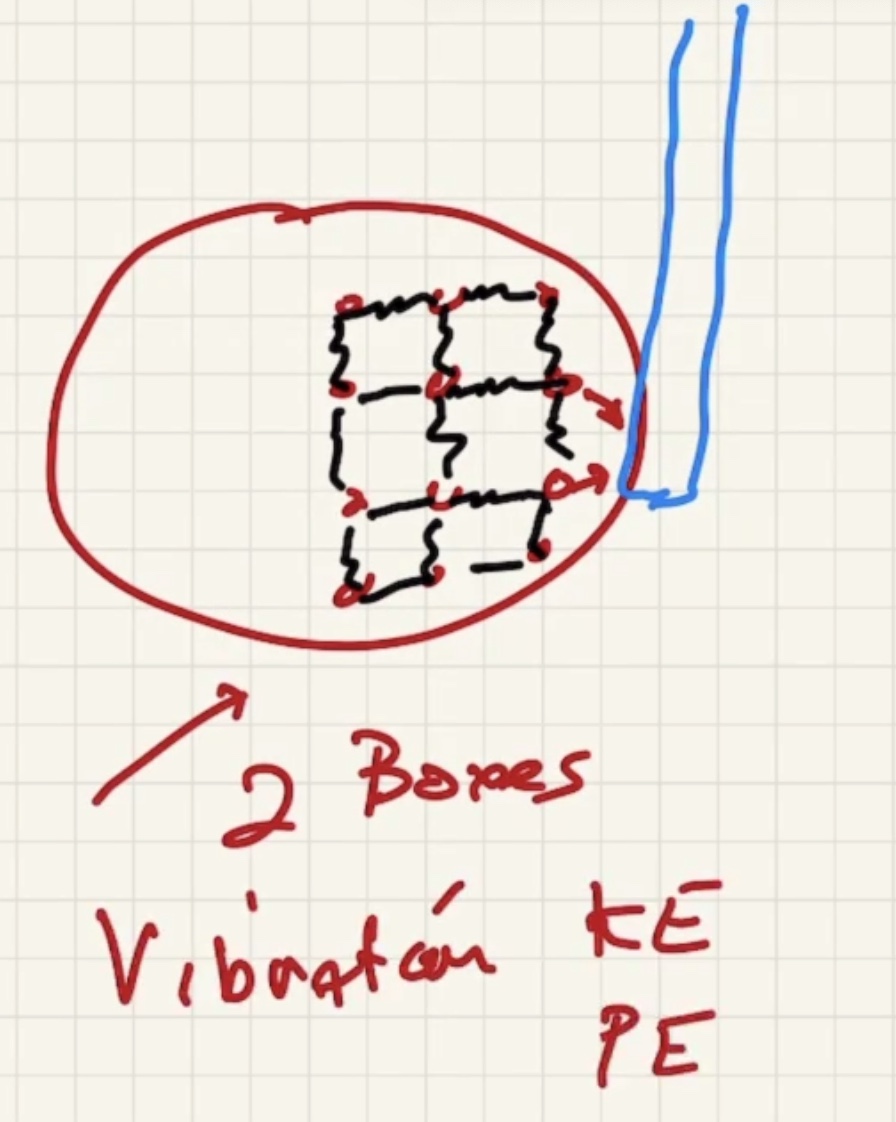 2 Boxes
Vibration KE
PE